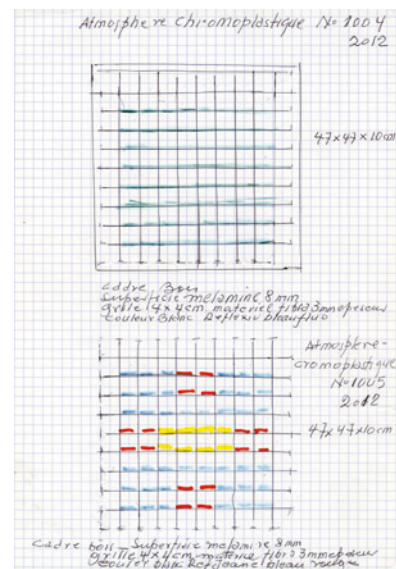 Atmosphere Chromoplastique No 1004
2012
47x47x10cm
Cadre Bois
Superficie melamine 8mm
grille 4x4cm materiel fibra 3mm
Couleur Blanc Reflexiv bleau fluo
Atmosphere-
cromoplastique
No 1005
2012
47x47x10cm
Cadre bois - Superficie melamire 8mm
grille 4x4cm materiel fibra 3mm
Couleur blanc bleau